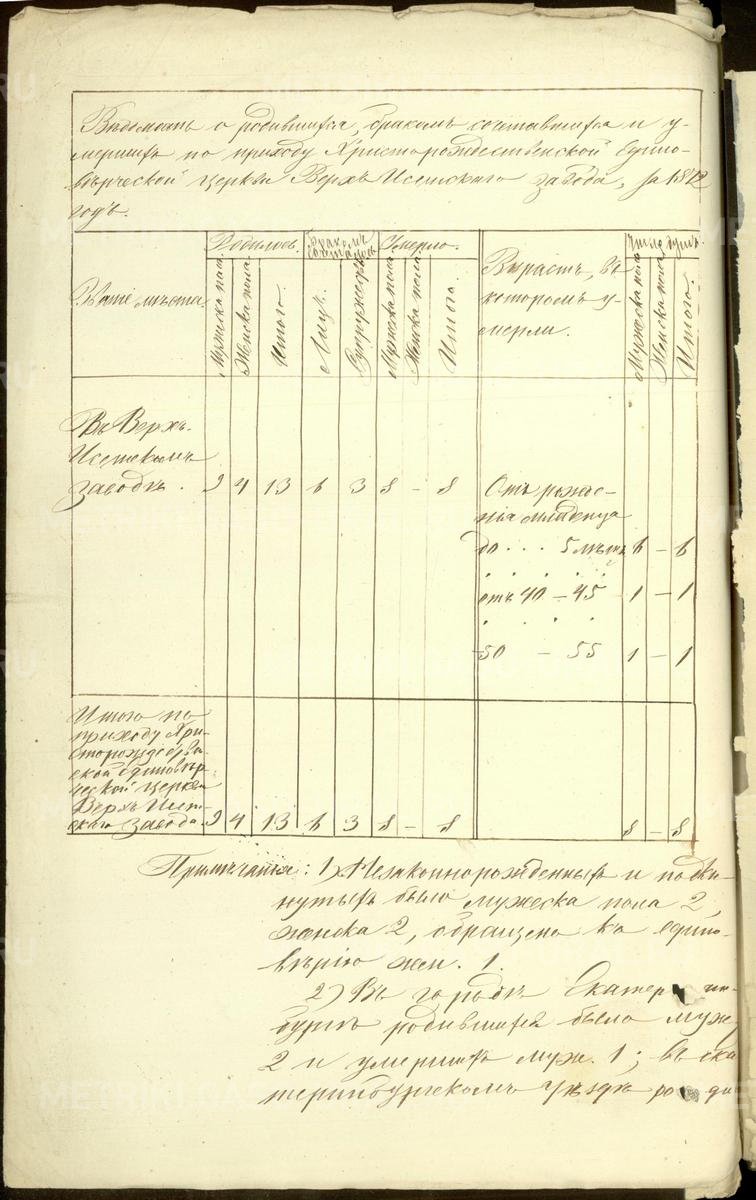 Вѣдомость о родившихся, бракомъ сочетавшихся и у-
мершихъ по приходу Христорождественской едино-
вѣрческой церкви Верхъ Исетскаго завода, за 18 2
годъ.
Родилось. Бракомъ сочеталось Умерло. Число душъ.
Званіе мѣста. Мужеска пола. Женска пола. Итого. Лицъ. Супружествъ Мужеска пола. Женска пола. Итого. Возрастъ, въ которомъ у-мерли. Мужеска пола Женска пола. Итого.
Въ Верхъ-
Исетскомъ
заводѣ. 9 4 13 6 3 8 - 8 Отъ рожде-
нія младенца
до . . . 5 лѣтъ 6 - 6
. . . .
отъ 40 - 45 1 - 1
. . . .
50 - 55 1 - 1
Итого по
приходу Хри-
сторождестве
ской единовѣр-
ческой церкви
Верхъ Исет-
скаго завода 9 4 13 6 3 8 - 8 8 - 8
Примѣчанія: 1) Незаконнорожденныхъ и подки-
нутыхъ было мужеска пола 2,
женска 2, обращено къ едино-
вѣрію жен. 1.
2) Въ городѣ Екатерин-
бургѣ родившихся было муж
2 и умершихъ муж. 1; въ Ека
теринбургскомъ Уѣздѣ роди